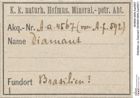 K. k. naturh. Hofmus. Mineral.-petr. Abt.
Akq.-Nr. A.a.4567 (von A.f.892)
Name Diamant
Fundort Brasilien?